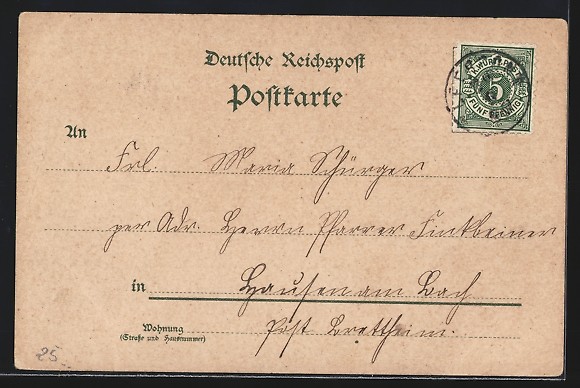 Deutsche Reichspost
Postkarte
K. WÜRTT. POST
5
FÜNF PFENNIG
An
Frl. Maria Schürger
per Adr. Herrn Pfarrer Finkbeiner
in Hausen am Bach
Wohnung
(Straße und Hausnummer)
Post Brettheim.
25